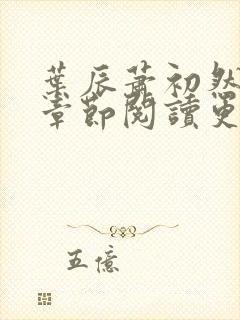 葉辰蕭初然
章節閱讀更
五億